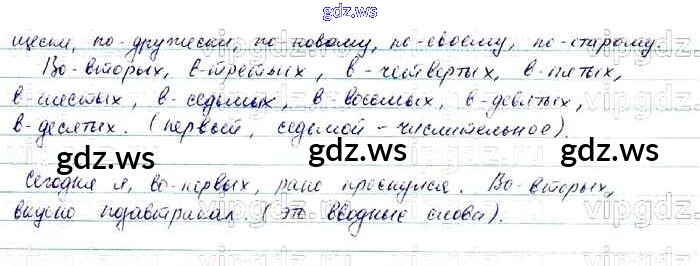 gdz.ws
щески, по-дружески, по-новому, по-своему, по-старому.
Во-вторых, в-третьих, в-четвертых, в-пятых,
в-шестых, в-седьмых, в-восьмых, в-девятых,
в-десятых. (первый, седьмой - числительное).
gdz.ws gdz.ws gdz.ws
Сегодня я, во-первых, рано проснулся. Во-вторых,
вкусно позавтракал. (эт вводные слова).
vipgdz.ru
gdz.ws